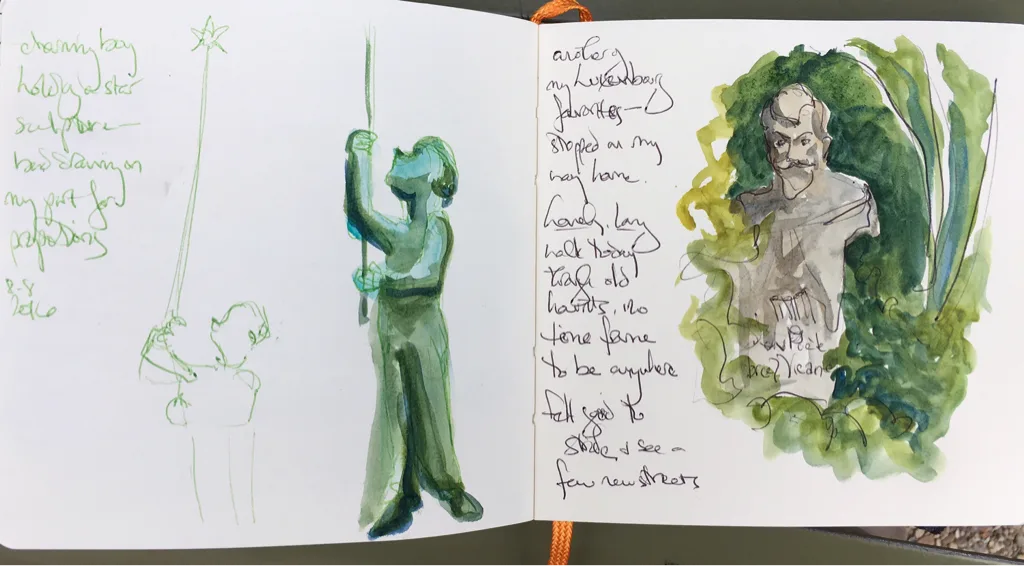 charming boy
holding a star
sculpture—
bad drawing on
my part for
proportions
8-8
another of
my Luxembourg
favorites—
stopped on my
way home.
Lovely, long
walk today
through old
haunts, no
time frame
to be anywhere
felt good to
stride & see a
few new streets